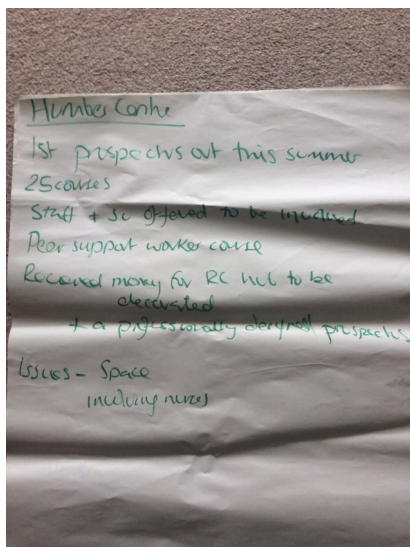 Humber Centre
1st prospectus out this summer
25 courses
Staff + SU offered to be involved
Peer support worker course
Received money for RC hub to be
decorated
+ a professionally designed prospectus
Issues - Space
involving nurses